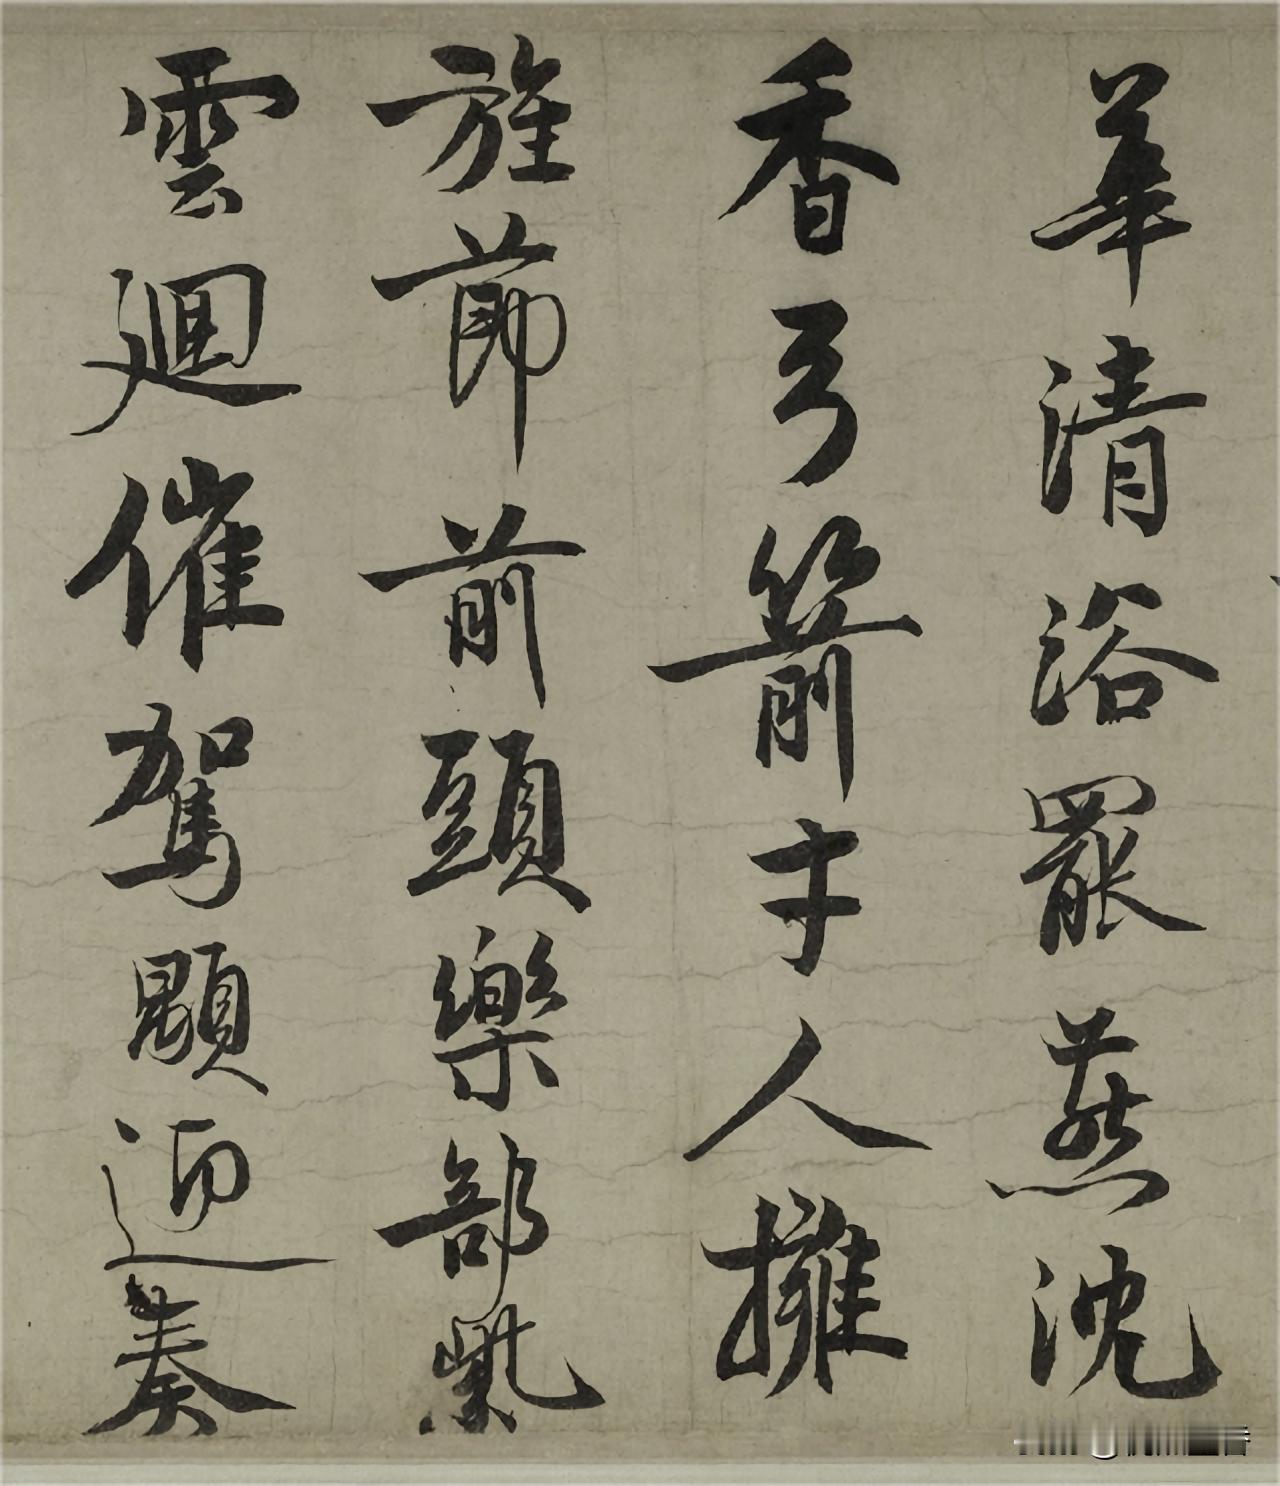 華清浴罷爇沈
香弓箭才人擁
旌節前頭樂部紫
雲迴催駕顯迎奏